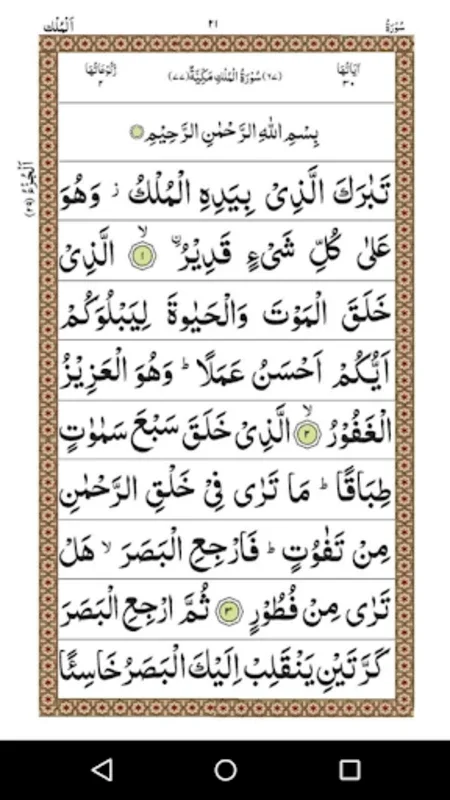 سُوْرَةُ ٢١ اَلْمُلْك
اٰيَاتُهَا ٣٠ (٦٧) سُوْرَةُ الْمُلْكِ مَكِّيَّةٌ (٧٧) رُكُوْعَاتُهَا ٢
بِسْمِ اللّٰهِ الرَّحْمٰنِ الرَّحِيْمِ
اَلْجُزْءُ (٢٩)
تَبٰرَكَ الَّذِىْ بِيَدِهِ الْمُلْكُ ز وَهُوَ
عَلٰى كُلِّ شَىْءٍ قَدِيْرُ ۙ ١ الَّذِىْ
خَلَقَ الْمَوْتَ وَالْحَيٰوةَ لِيَبْلُوَكُمْ
اَيُّكُمْ اَحْسَنُ عَمَلًا ؕ وَهُوَ الْعَزِيْزُ
الْغَفُوْرُ ۙ ٢ الَّذِىْ خَلَقَ سَبْعَ سَمٰوٰتٍ
طِبَاقًا ؕ مَا تَرٰى فِىْ خَلْقِ الرَّحْمٰنِ
مِنْ تَفٰوُتٍ ؕ فَارْجِعِ الْبَصَرَ ۙ هَلْ
تَرٰى مِنْ فُطُوْرٍ ٣ ثُمَّ ارْجِعِ الْبَصَرَ
كَرَّتَيْنِ يَنْقَلِبْ اِلَيْكَ الْبَصَرُ خَاسِئًا